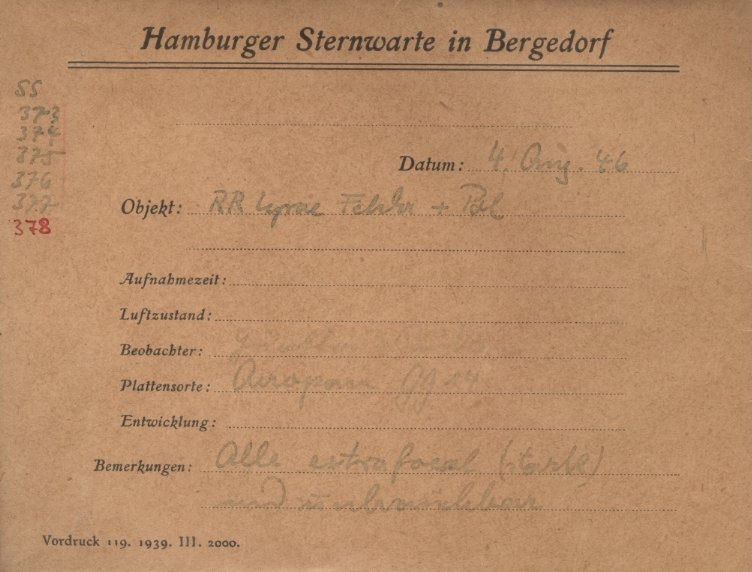 Hamburger Sternwarte in Bergedorf
SS
373
374
375
376
377
378
Datum: 4. Aug. 46
Objekt: RR Lyrae Felder + Pol
Aufnahmezeit:
Luftzustand:
Beobachter:
Plattensorte: Aeropan GG 14
Entwicklung:
Bemerkungen: Alle extrafocal (stark)
und unbrauchbar
Vordruck 119. 1939. III. 2000.